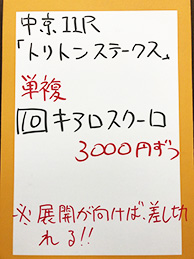 中京11R
「トリトンステークス」
単複
10 キアロスクーロ
3000円ずつ
※展開が向けば、差し切
れる!!